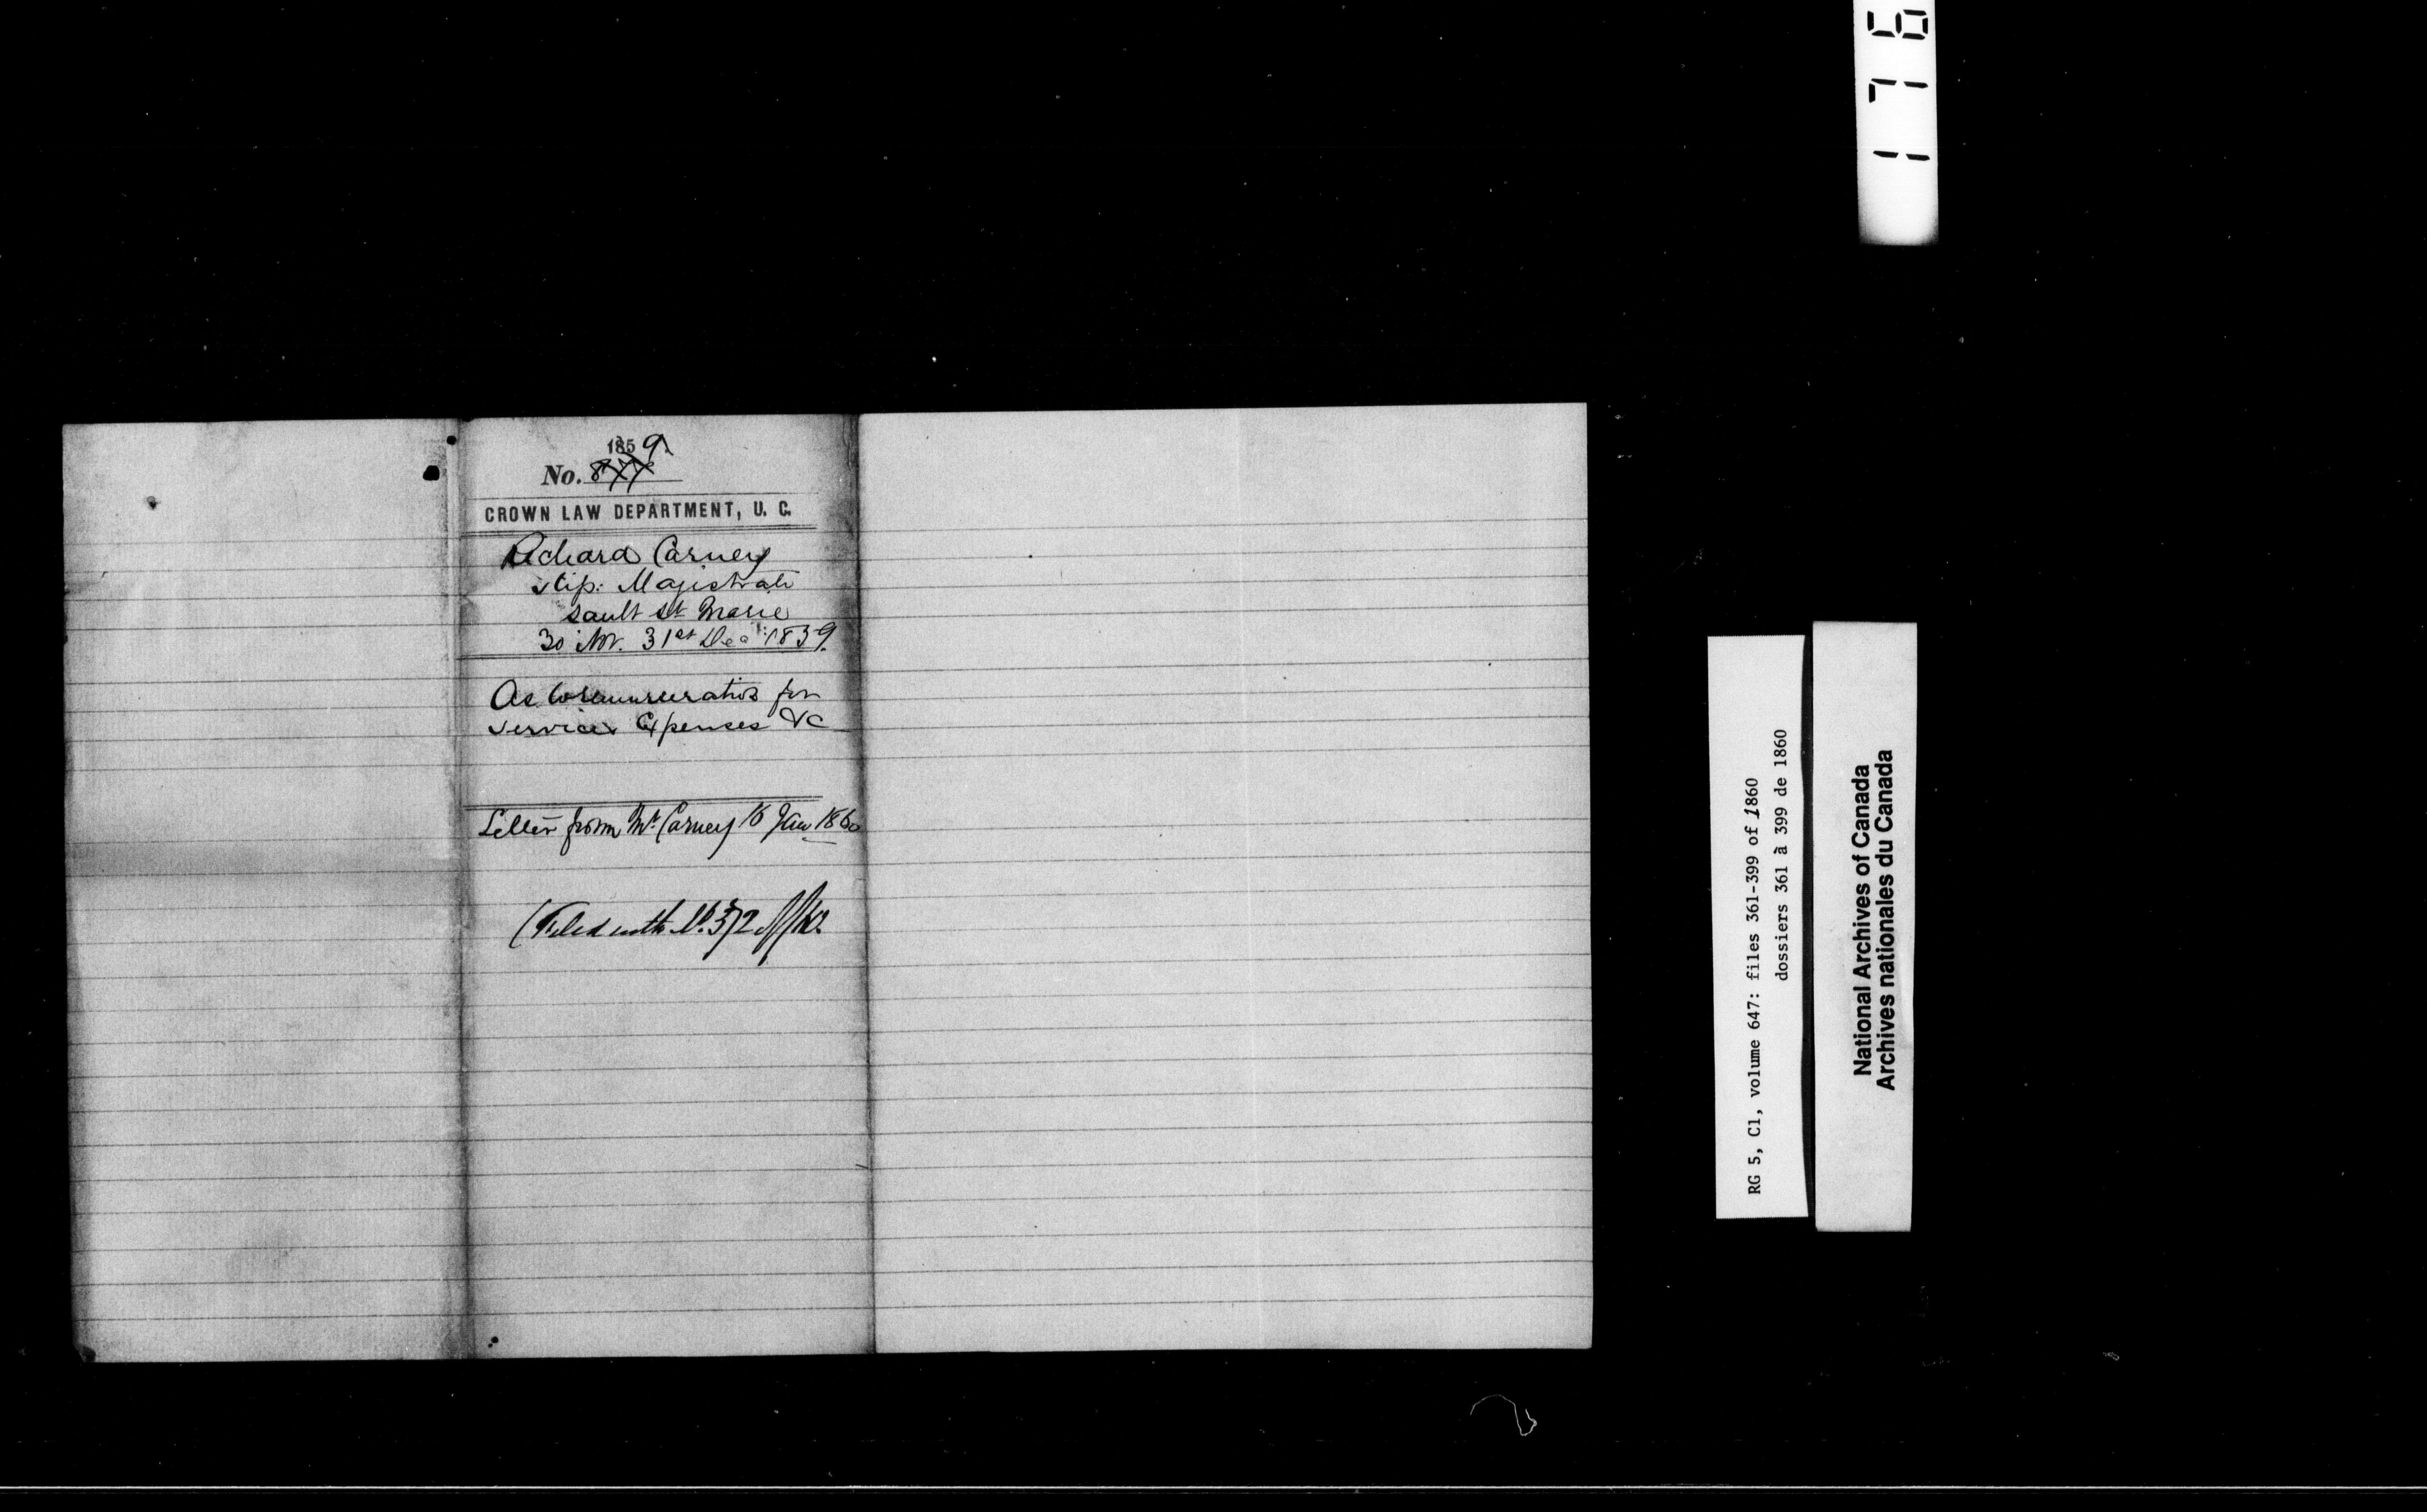 1859.
No. 877
CROWN LAW DEPARTMENT, U. C.
Richard Carney
Stip: Magistrate
Sault St Marie
30 Nov. 31st Dec: 1859.
As to remuneration for
services Expenses &c
Letter from Mr Carney 16 Jany 1860
(Filed with No. 372
176
RG 5, C1, volume 647: files 361-399 of 1860
dossiers 361 à 399 de 1860
National Archives of Canada
Archives nationales du Canada